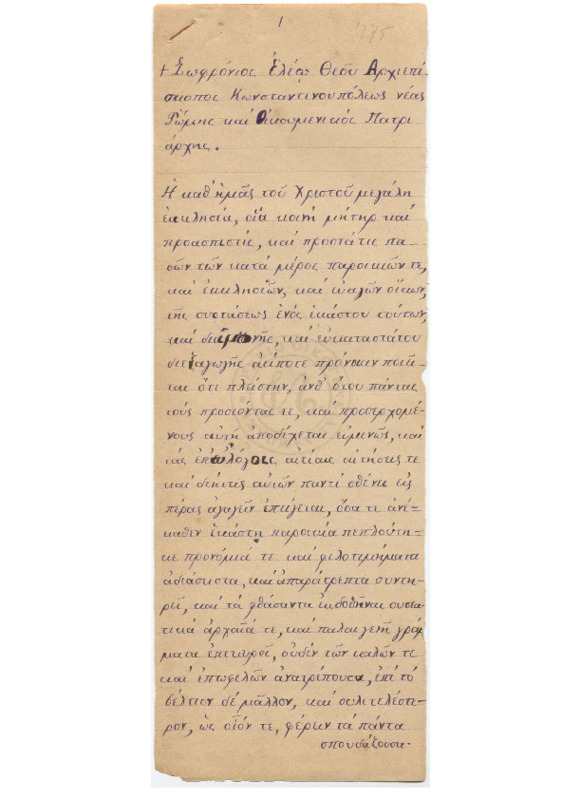 1
775
+ Σωφρόνιος Ἐλέῳ Θεοῦ Ἀρχιεπί
σκοπος Κωνσταντινουπόλεως νέας
Ῥώμης καὶ Οἰκουμενικὸς Πατρι
άρχης.
Ἡ καθ' ἡμᾶς τοῦ Χριστοῦ μεγάλη
ἐκκλησία, οἷα κοινὴ μήτηρ καὶ
προασπιστὶς, καὶ προστάτις πα-
σῶν τῶν κατὰ μέρος παροικιῶν τε,
καὶ ἐκκλησιῶν, καὶ εὐαγῶν οἴκων,
τῆς συστάσεως ἑνὸς ἑκάστου τούτων,
καὶ διαμονῆς, καὶ εὐκαταστάτου
διεξαγωγῆς ἀείποτε πρόνοιαν ποιεῖ-
ται ὅτι πλείστην, ἀνθ' ὅτου πάντας
τοὺς προσιόντας τε, καὶ προσερχομέ-
νους αὐτῇ ἀποδέχεται εὐμενῶς, καὶ
τὰς ἐπ' εὐλόγοις αἰτίαις αἰτήσεις τε
καὶ δεήσεις αὐτῶν παντὶ σθένει εἰς
πέρας ἀγαγεῖν ἐπείγεται, ὅσα τε ἀνέ-
καθεν ἑκάστη παροικία πεπλούτη-
κε προνόμιά τε καὶ φιλοτιμήματα
ἀδιάσειστα, καὶ ἀπαράτρεπτα συντη-
ρεῖ, καὶ τὰ φθάσαντα ἐκδοθῆναι συστα
τικὰ ἀρχαῖά τε, καὶ παλαιγενῆ γράμ
ματα ἐπικυροῖ, οὐδὲν τῶν καλῶν τε
καὶ ἐπωφελῶν ἀνατρέπουσα, ἐπὶ τὸ
βέλτιον δὲ μᾶλλον, καὶ συλιτελέστε-
ρον, ὡς οἷόν τε, φέρειν τὰ πάντα
σπουδάζουσα.